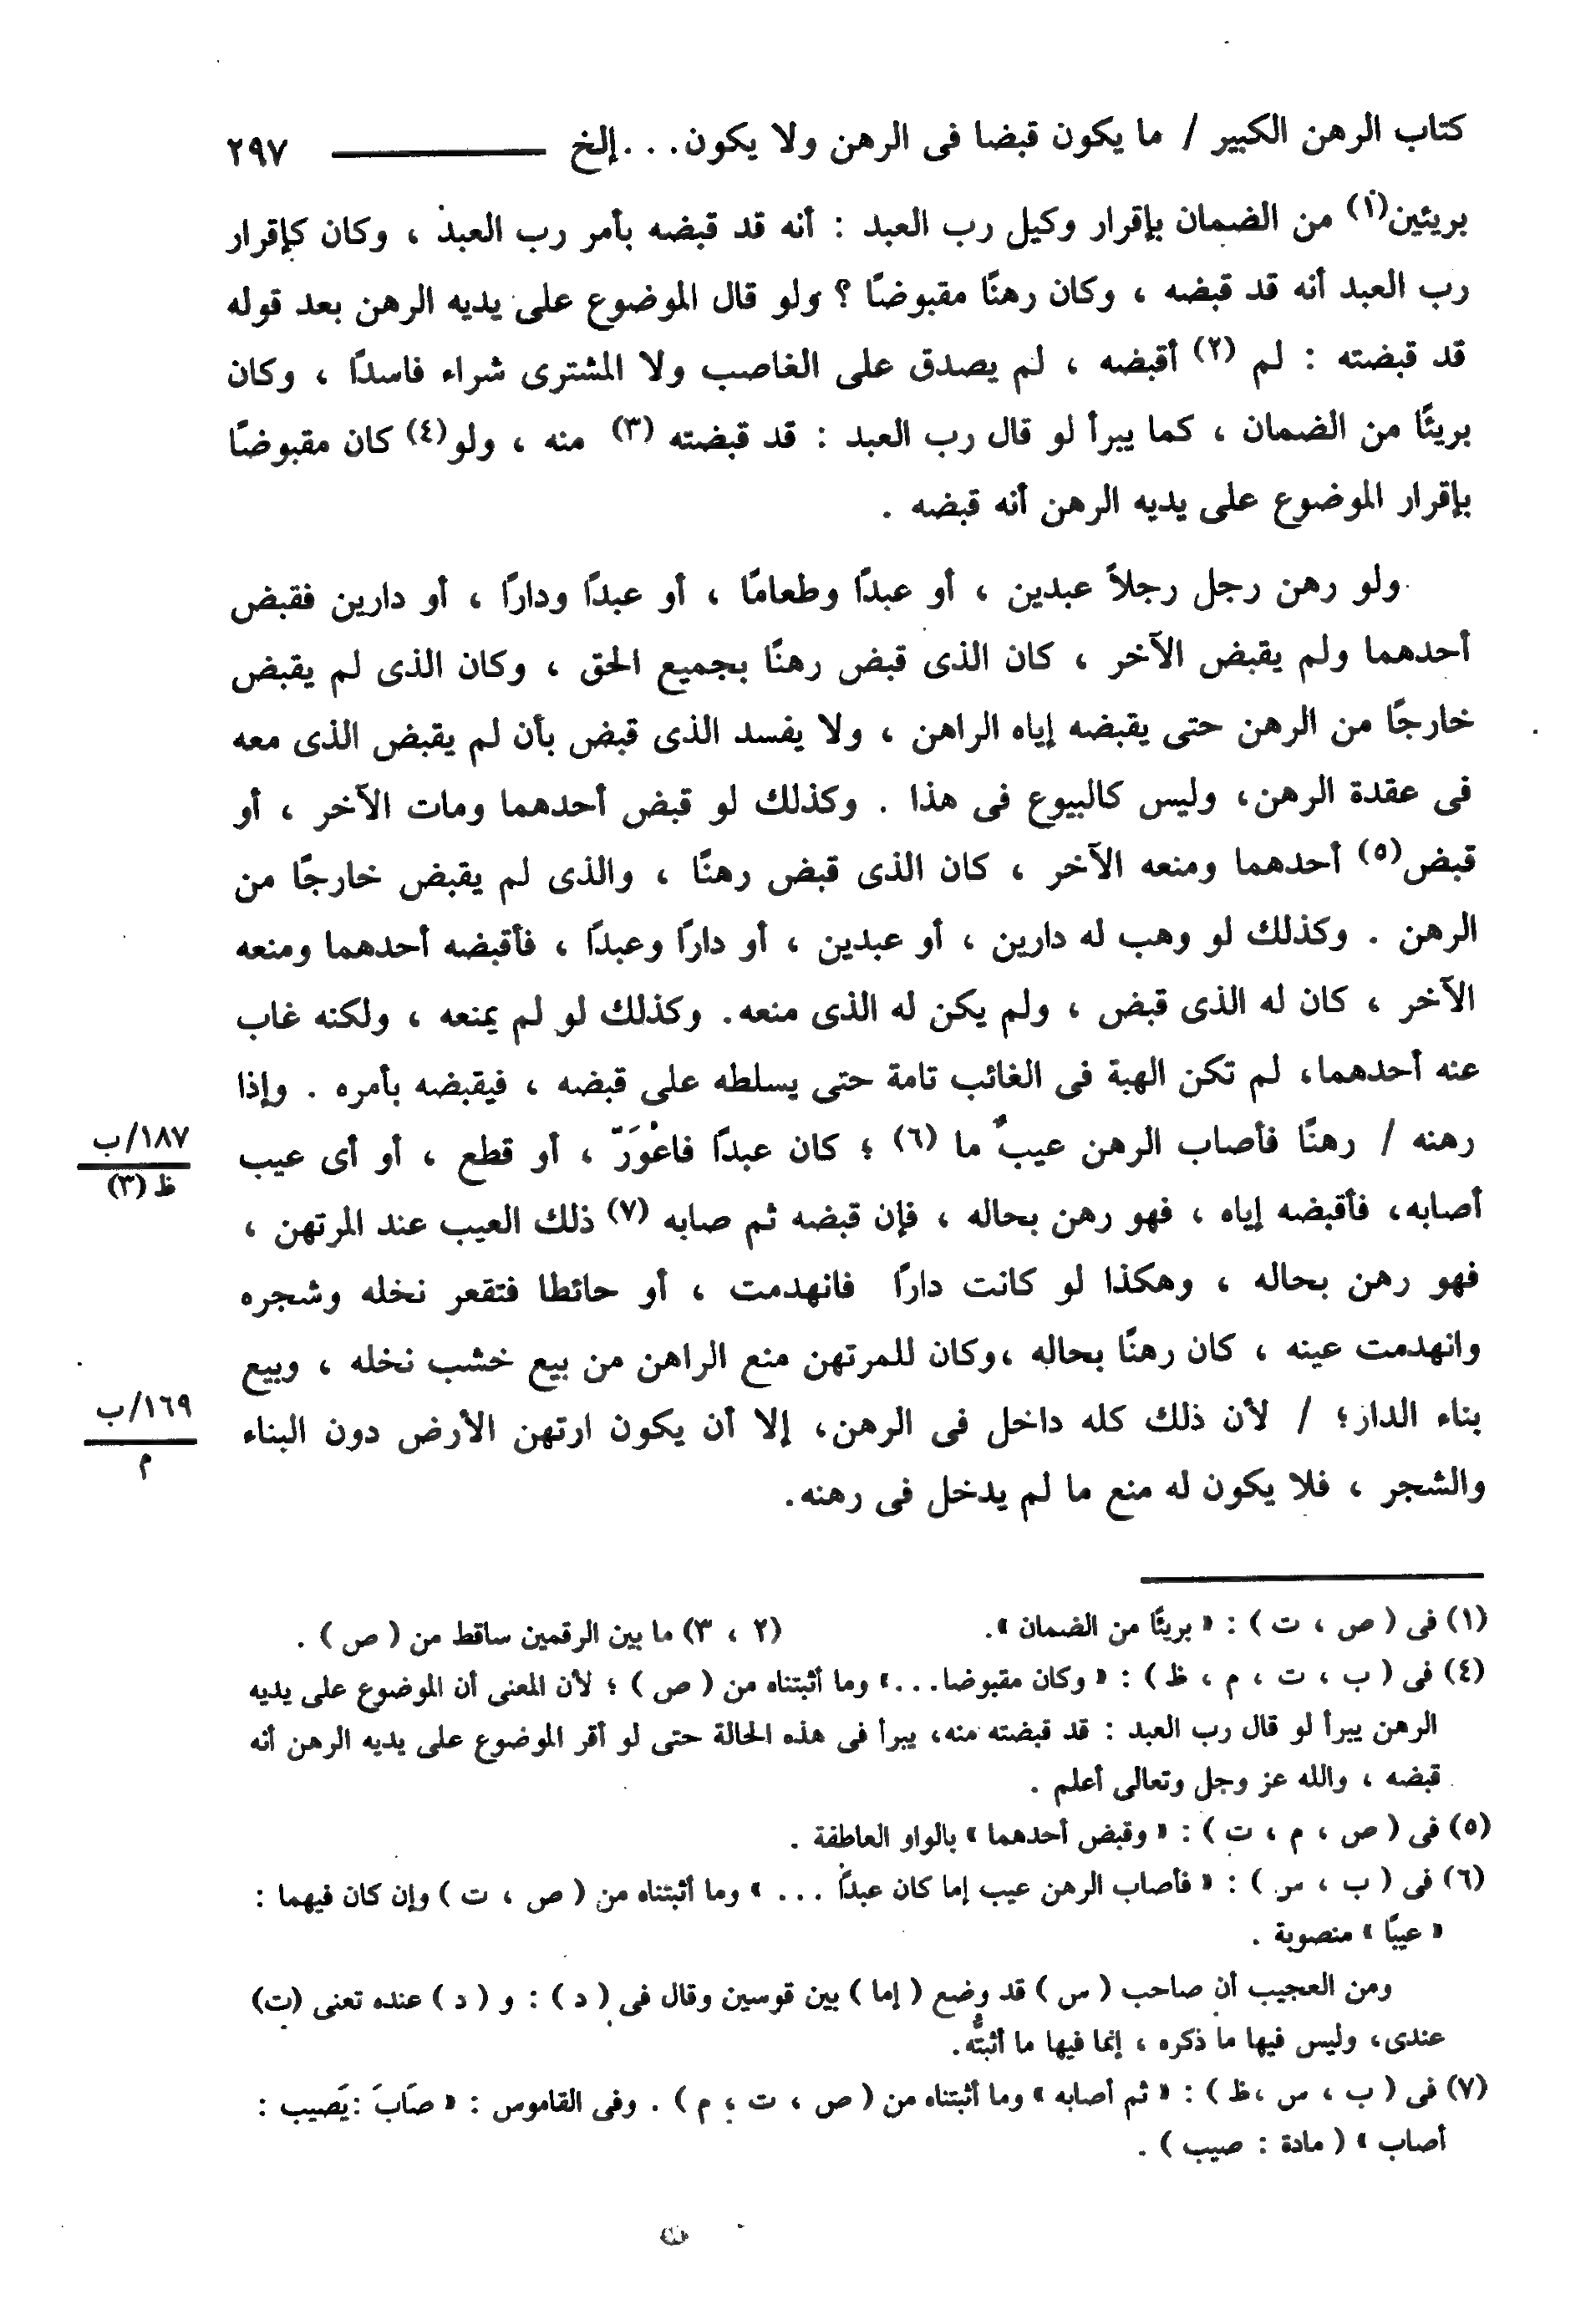 كتاب الرهن الكبير / ما يكون قبضا فى الرهن ولا يكون. . .إلخ ٢٩٧
بريئين(١) من الضمان بإقرار وكيل رب العبد : أنه قد قبضه بأمر رب العبد ، وكان كإقرار
رب العبد أنه قد قبضه ، وكان رهنًا مقبوضًا ؟ ولو قال الموضوع على يديه الرهن بعد قوله
قد قبضته : لم (٢) أقبضه ، لم يصدق على الغاصب ولا المشترى شراء فاسدًا ، وكان
بريئًا من الضمان ، كما يبرأ لو قال رب العبد : قد قبضته (٣) منه ، ولو(٤) كان مقبوضًا
بإقرار الموضوع على يديه الرهن أنه قبضه .
ولو رهن رجل رجلاً عبدين ، أو عبدًا وطعامًا ، أو عبدًا ودارًا ، أو دارين فقبض
أحدهما ولم يقبض الآخر ، كان الذى قبض رهنًا بجميع الحق ، وكان الذى لم يقبض
خارجًا من الرهن حتى يقبضه إياه الراهن ، ولا يفسد الذى قبض بأن لم يقبض الذى معه
فى عقدة الرهن، وليس كالبيوع فى هذا . وكذلك لو قبض أحدهما ومات الآخر ، أو
قبض(٥) أحدهما ومنعه الآخر ، كان الذى قبض رهنًا ، والذى لم يقبض خارجًا من
الرهن . وكذلك لو وهب له دارين ، أو عبدين ، أو دارًا وعبدًا ، فأقبضه أحدهما ومنعه
الآخر ، كان له الذى قبض ، ولم يكن له الذى منعه. وكذلك لو لم يمنعه ، ولكنه غاب
عنه أحدهما، لم تكن الهبة فى الغائب تامة حتى يسلطه على قبضه ، فيقبضه بأمره . وإذا
رهنه / رهنًا فأصاب الرهن عيبٌ ما (٦) ؛ كان عبدًا فاعْوَرّ ، أو قطع ، أو أى عيب
١٨٧/ب
ظ (٣)
أصابه، فأقبضه إياه ، فهو رهن بحاله ، فإن قبضه ثم صابه (٧) ذلك العيب عند المرتهن ،
فهو رهن بحاله ، وهكذا لو كانت دارًا فانهدمت ، أو حائطا فتقعر نخله وشجره
وانهدمت عينه ، كان رهنًا بحاله ،وكان للمرتهن منع الراهن من بيع خشب نخله ، وبيع
بناء الدار؛ / لأن ذلك كله داخل فى الرهن، إلا أن يكون ارتهن الأرض دون البناء
١٦٩/ب
م
والشجر ، فلا يكون له منع ما لم يدخل فى رهنه.
(١) فى ( ص ، ت ) : « بريئًا من الضمان ». (٢ ، ٣) ما بين الرقمين ساقط من ( ص ) .
(٤) فى ( ب ، ت ، م ، ظ ) : « وكان مقبوضا. . .» وما أثبتناه من ( ص ) ؛ لأن المعنى أن الموضوع على يديه
الرهن يبرأ لو قال رب العبد : قد قبضته منه، يبرأ فى هذه الحالة حتى لو أقر الموضوع على يديه الرهن أنه
قبضه ، والله عز وجل وتعالى أعلم .
(٥) فى ( ص ، م ، ت ) : « وقبض أحدهما » بالواو العاطفة .
(٦) فى ( ب ، س ) : « فأصاب الرهن عيب إما كان عبدًا . . . » وما أثبتناه من ( ص ، ت ) وإن كان فيهما :
« عيبًا » منصوبة .
ومن العجيب أن صاحب ( س ) قد وضع ( إما ) بين قوسين وقال فى ( د ) : و ( د ) عنده تعنى (ت)
عندى، وليس فيها ما ذكره ، إنما فيها ما أثبتُّه.
(٧) فى ( ب ، س ،ظ ) : « ثم أصابه » وما أثبتناه من ( ص ، ت ، م ) . وفى القاموس : « صَابَ :يَصيب :
أصاب » ( مادة : صيب ) .